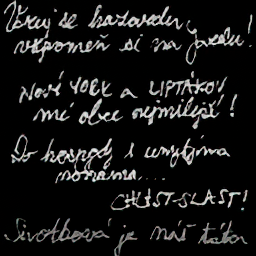 Varuj se hazardu,
vzpomeň si na Juvalu!
NOVÝ YORK a LIPTÁKOV
mé obce nejmilejší!
Do hospody s umytýma
nohama...
CHLAST-SLAST!
Sivatbová je náš táta